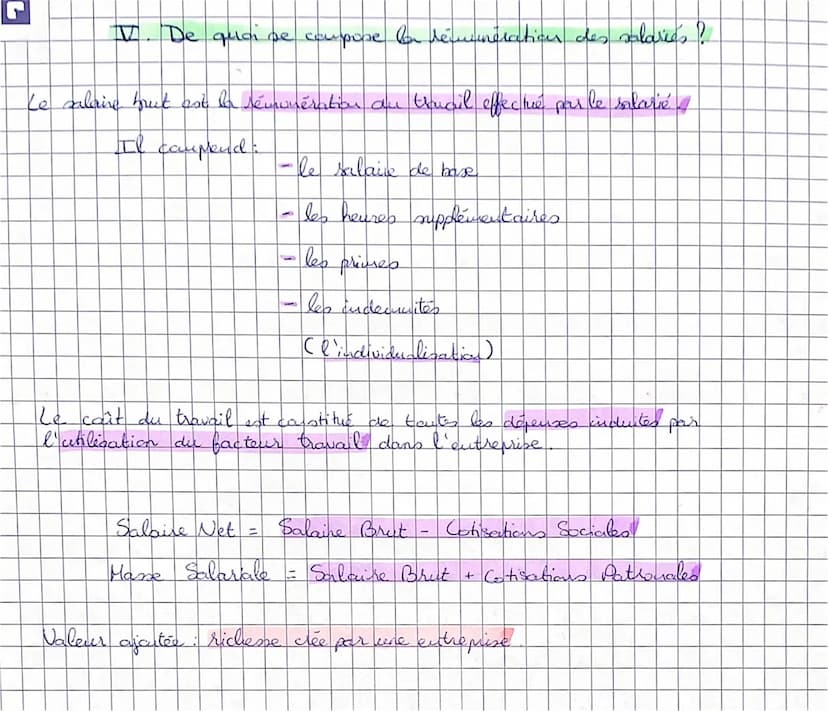 IV. De quoi se compose la rémunération des salariés ?
Le salaire brut est la rémunération du travail effectué par le salarié.
Il comprend :
- le salaire de base
- les heures supplémentaires
- les primes
- les indemnités
(l'individualisation)
Le coût du travail est constitué de toutes les dépenses induites par
l'utilisation du facteur travail dans l'entreprise.
Salaire Net = Salaire Brut - Cotisations Sociales
Masse Salariale = Salaire Brut + Cotisations Patronales
Valeur ajoutée : richesse créée par une entreprise.